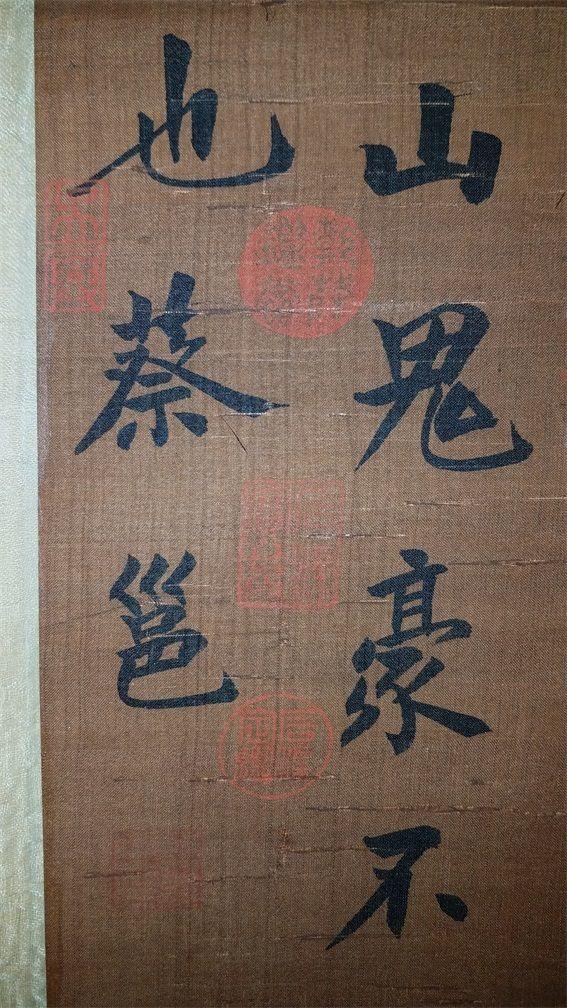 山鬼豪不
也蔡邕